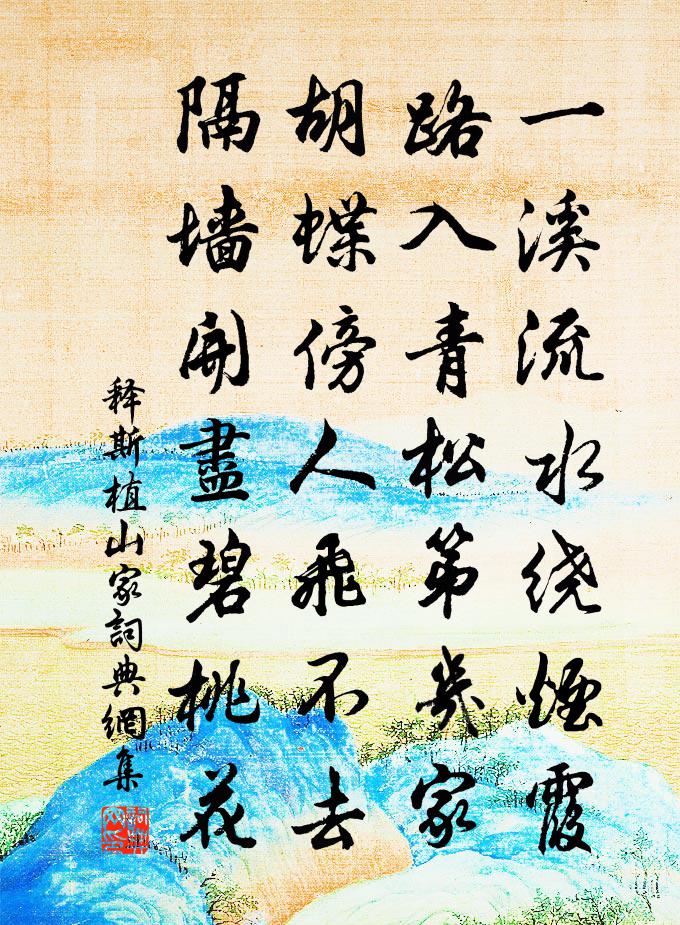 一溪流水绕煙霞
路入青松第幾家
胡蝶傍人飛不去
隔墙開盡碧桃花
释斯植山家詞典網集